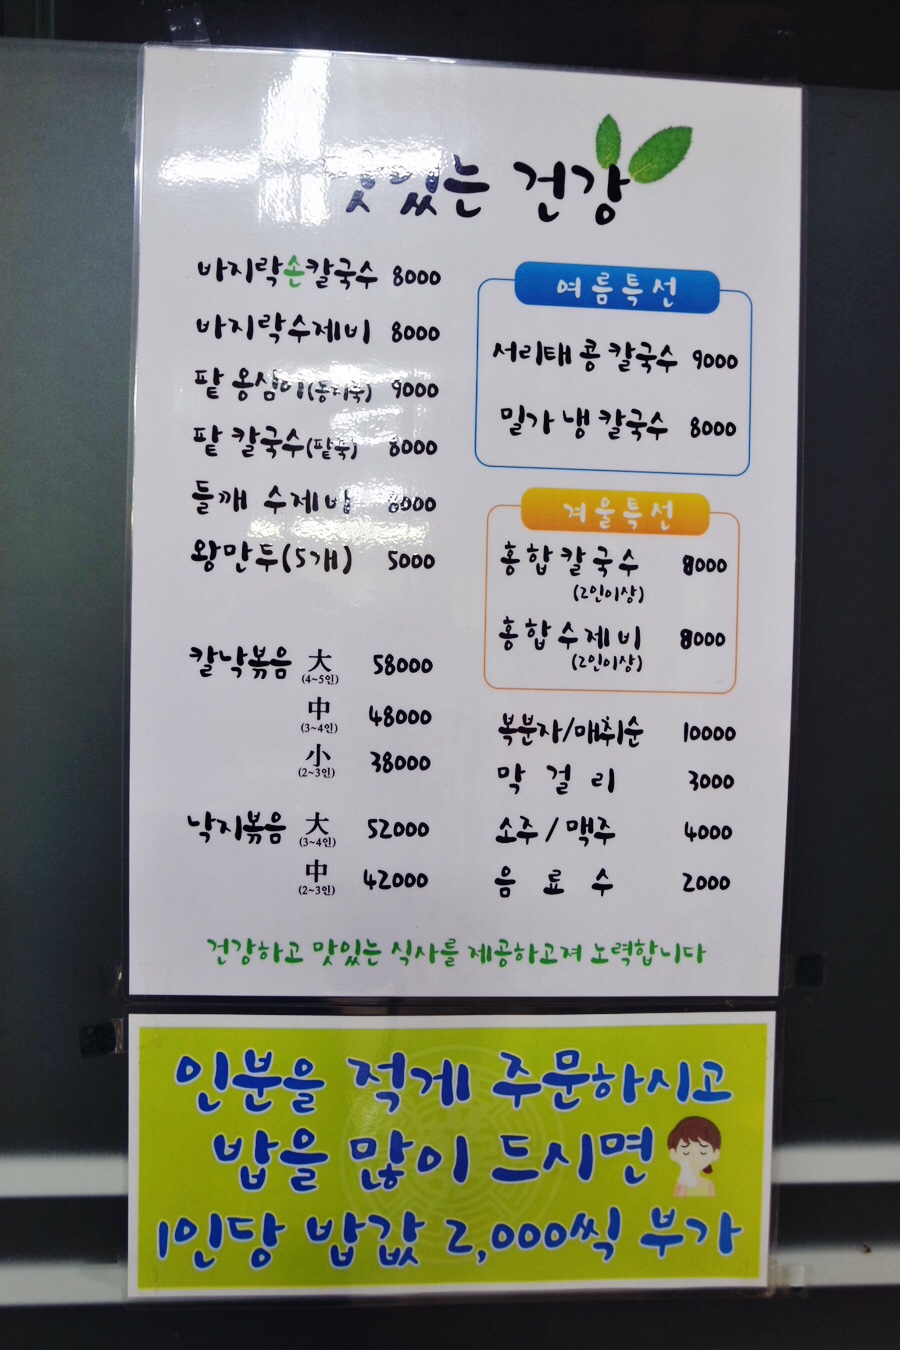 맛있는 건강
바지락손칼국수 8000
바지락수제비 8000
팥 옹심이(동지죽) 9000
팥 칼국수(팥죽) 8000
들깨 수제비 8000
왕만두(5개) 5000
칼낙볶음 大 58000
(4~5인)
中 48000
(3~4인)
小 38000
(2~3인)
낙지볶음 大 52000
(3~4인)
中 42000
(2~3인)
여름특선
서리태 콩 칼국수 9000
밀가 냉 칼국수 8000
겨울특선
홍합칼국수 8000
(2인이상)
홍합수제비 8000
(2인이상)
복분자/매취순 10000
막걸리 3000
소주/맥주 4000
음료수 2000
건강하고 맛있는 식사를 제공하고져 노력합니다
인분을 적게 주문하시고
밥을 많이 드시면
1인당 밥값 2,000씩 부가